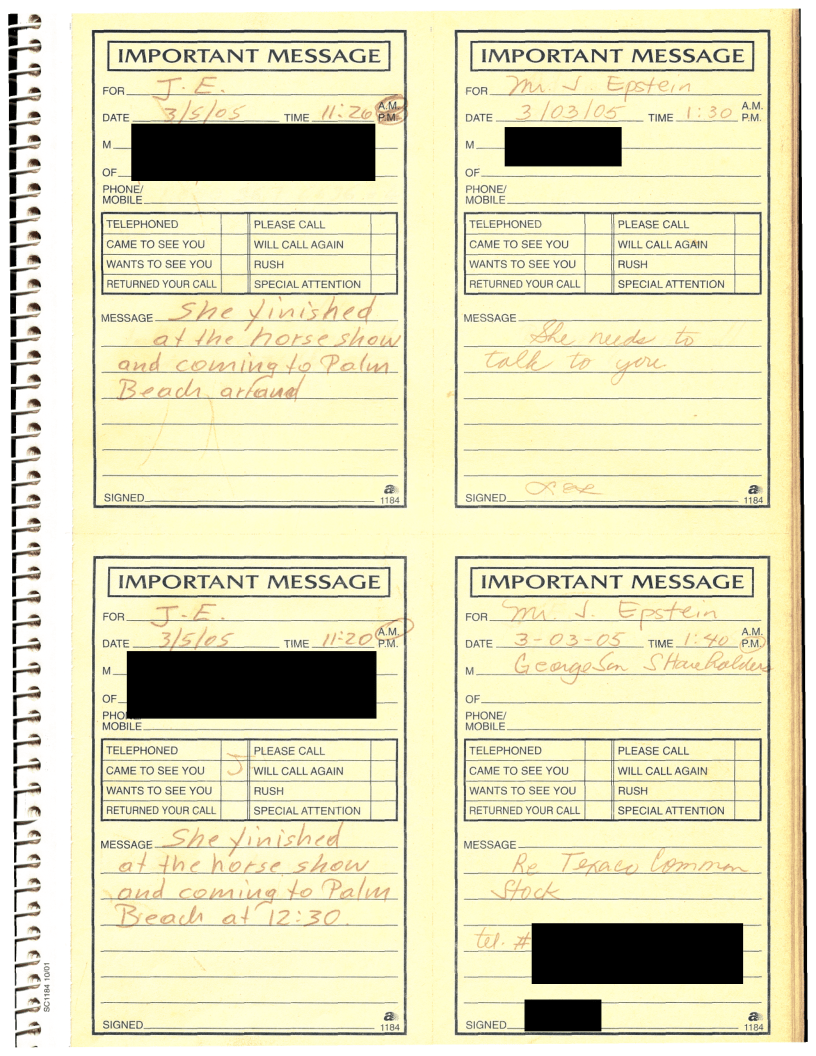 IMPORTANT MESSAGE
FOR J.E.
DATE 3/5/05 TIME 11:26 A.M. P.M.
M
OF
PHONE/
MOBILE
TELEPHONED PLEASE CALL
CAME TO SEE YOU WILL CALL AGAIN
WANTS TO SEE YOU RUSH
RETURNED YOUR CALL SPECIAL ATTENTION
MESSAGE She finished
at the horse show
and coming to Palm
Beach around
SIGNED
a
1184
IMPORTANT MESSAGE
FOR Mr. J. Epstein
DATE 3/03/05 TIME 1:30 A.M. P.M.
M
OF
PHONE/
MOBILE
TELEPHONED PLEASE CALL
CAME TO SEE YOU WILL CALL AGAIN
WANTS TO SEE YOU RUSH
RETURNED YOUR CALL SPECIAL ATTENTION
MESSAGE
She needs to
talk to you.
SIGNED
a
1184
IMPORTANT MESSAGE
FOR J.E.
DATE 3/5/05 TIME 11:20 A.M. P.M.
M
OF
PHONE/
MOBILE
TELEPHONED PLEASE CALL
CAME TO SEE YOU WILL CALL AGAIN
WANTS TO SEE YOU RUSH
RETURNED YOUR CALL SPECIAL ATTENTION
MESSAGE She finished
at the horse show
and coming to Palm
Breach at 12:30.
SIGNED
a
1184
IMPORTANT MESSAGE
FOR Mr. J. Epstein
DATE 3-03-05 TIME 1:40 A.M. P.M.
M GeorgeSon Shareholders
OF
PHONE/
MOBILE
TELEPHONED PLEASE CALL
CAME TO SEE YOU WILL CALL AGAIN
WANTS TO SEE YOU RUSH
RETURNED YOUR CALL SPECIAL ATTENTION
MESSAGE
Re Texaco Common
Stock
tel. #
SIGNED
a
1184
SC1184 10/01